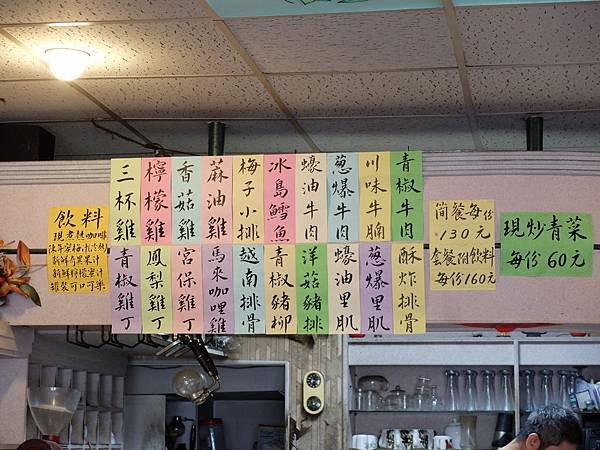 飲料
現煮熱咖啡
新鮮奇異果汁
新鮮檸檬蜜汁
罐裝可口可樂
三杯雞
檸檬雞
香菇雞
蔴油雞
梅子小排
冰島鱈魚
蠔油牛肉
葱爆牛肉
川味牛腩
青椒牛肉
青椒雞丁
鳳梨雞丁
宮保雞丁
馬來咖哩雞
越南排骨
青椒豬柳
洋菇豬排
蠔油里肌
葱爆里肌
酥炸排骨
简餐每份
130元
套餐附飲料
每份160元
現炒青菜
每份60元